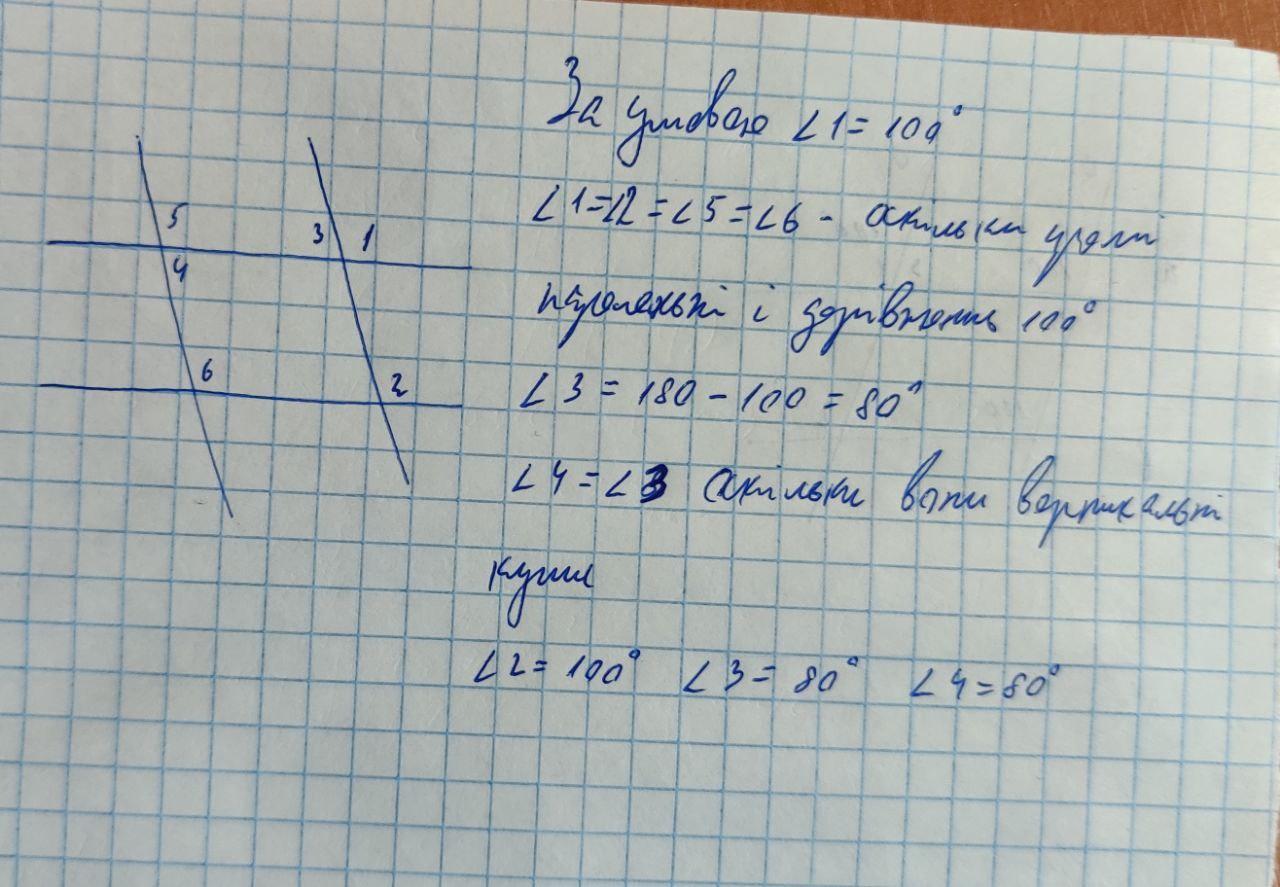 За умовою ∠1 = 100°
5
3 1
∠1=∠2=∠5=∠6 - оскільки прямі
4
паралельні і дорівнюють 100°
6
2
∠3 = 180 - 100 = 80°
∠4=∠3 оскільки вони вертикальні
кути
∠2= 100° ∠3= 80° ∠4=80°